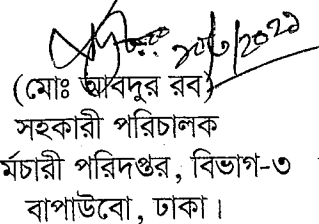 (মোঃ আবদুর রব)
সহকারী পরিচালক
র্মচারী পরিদপ্তর, বিভাগ-৩
বাপাউবো, ঢাকা।